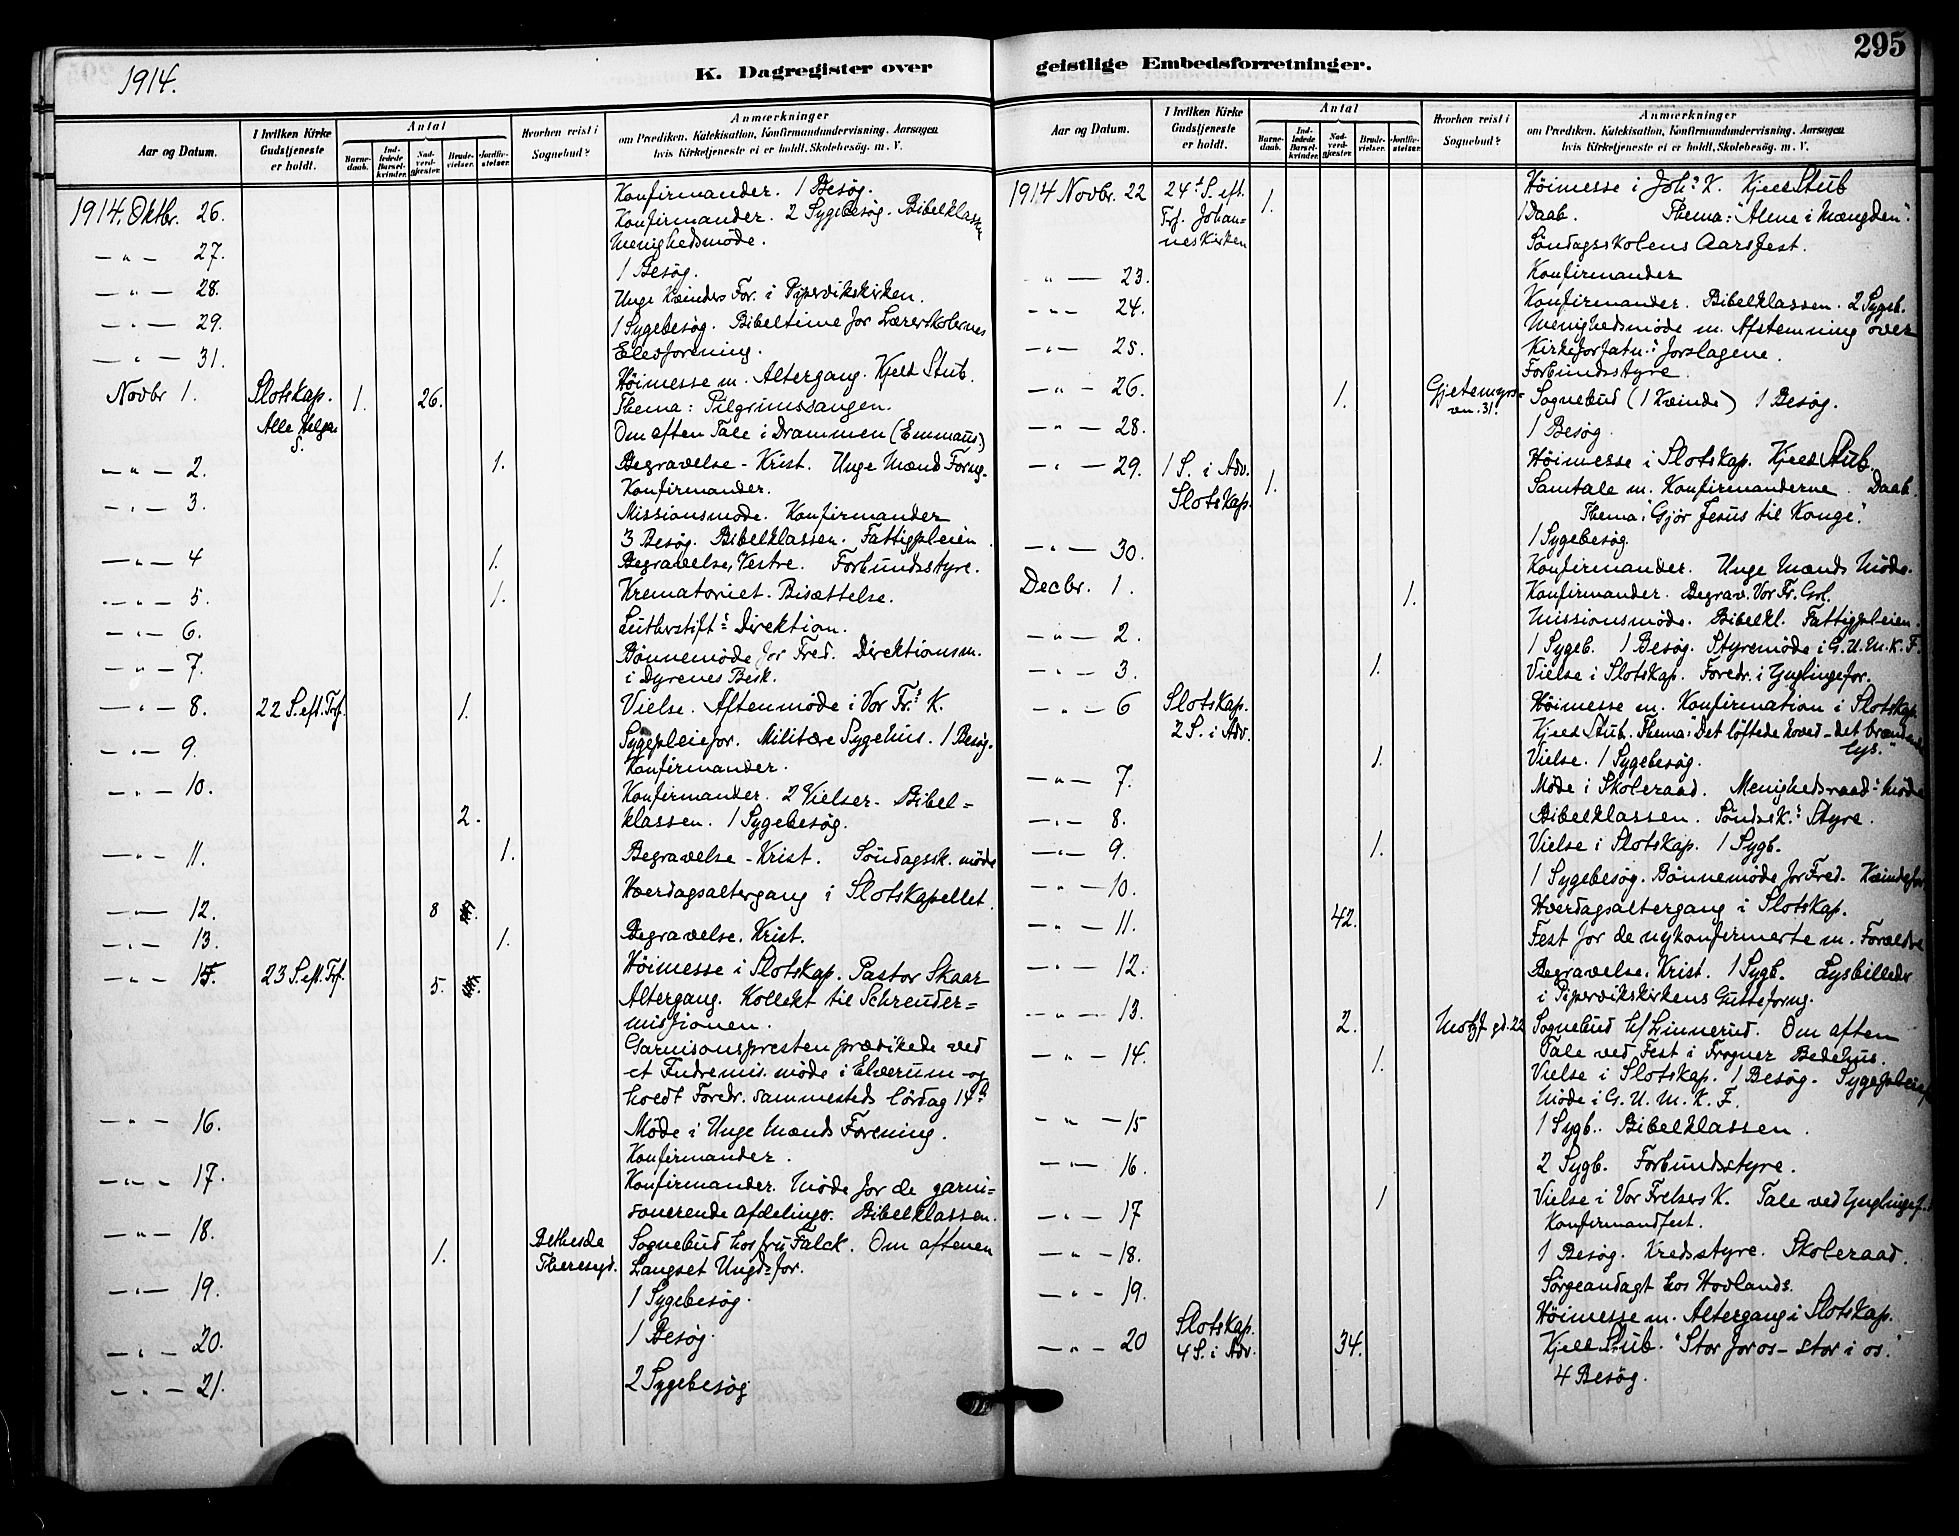 1914.
K. Dagregister over
Aar og Datum.
I hvilken Kirke Gudstjeneste er holdt.
Antal
Barne-daab.
Ind-ledede Barsel-kvinder.
Nad-verd-gjester.
Brude-vielser.
Jordfæ-stelser.
Hvorhen reist i Sognebud?
Anmærkninger
om Prædiken, Katekisation, Konfirmandundervisning, Aarsagen
hvis Kirketjeneste ei er holdt, Skolebesög, m. V.
Konfirmander. 1 Besøg.
1914. Oktbr. 26.
Konfirmander. 2 Sygebesøg. Bibelklassen
Menighedsmøde.
— " — 27.
1 Besøg.
— " — 28.
Unge Kvinders For. i Pipervikskirken.
— " — 29.
1 Sygebesøg. Bibeltime for Lærerskolernes
Elevforening.
— " — 31.
Høimesse m. Altergang. Kjeld Stub.
Novbr 1. Slotskap. 1. 26.
Thema: Pilgrimssangen.
Alle Helgens S.
Om aften Tale i Drammen (Emmaus.)
— " — 2. 1.
Begravelse - Krist. Unge Mænd Foreng.
Konfirmander.
— " — 3.
Missionsmøde. Konfirmander
3 Besøg. Bibelklassen. Fattigpleien.
— " — 4 1.
Begravelse, Vestre. Forbundsstyre.
— " — 5. 1.
Krematoriet. Bisættelse.
— " — 6.
Lutherstifts Direktion.
— " — 7.
Bønnemøde for Fred. Direktionsm.
i Dyrenes Besk.
— " — 8. 22 S. eft. Trf. 1.
Vielse. Aftenmøde i Vor Frs K.
— " — 9.
Sygepleiefor. Militære Sygehus. 1 Besøg.
Konfirmander.
— " — 10. 2.
Konfirmander. 2 Vielser. Bibel=
klassen. 1 Sygebesøg.
— " — 11. 1.
Begravelse - Krist. Søndagssk. møde
— " — 12. 8
Hverdagsaltergang i Slotskapellet.
— " — 13. 1.
Begravelse. Krist.
— " — 15. 23 S. eft. Trf. 5.
Høimesse i Slotskap. Pastor Skaar
Altergang. Kollekt til Schreuder-
missionen.
Garnisonspresten prædikede ved
et Indremis. møde i Elverum og
holdt Foredr. sammesteds lördag 14de
— " — 16.
Møde i Unge Mænds Forening.
Konfirmander.
— " — 17.
Konfirmander. Møde for de garni=
sonerende afdelingr. Bibelklassen.
— " — 18. 1. Bethesda Theresegd.
Sognebud hos fru Falck. Om aftenen
Langset Ungdsfor.
— " — 19.
1 Sygebesøg.
— " — 20.
1 Besøg.
— " — 21.
2 Sygebesøg
geistlige Embedsforretninger.
295
Aar og Datum.
I hvilken Kirke Gudstjeneste er holdt.
Antal
Barne-daab.
Ind-ledede Barsel-kvinder.
Nad-verd-gjester.
Brude-vielser.
Jordfæ-stelser.
Hvorhen reist i Sognebud?
Anmærkninger
om Prædiken, Katekisation, Konfirmandundervisning, Aarsagen
hvis Kirketjeneste ei er holdt, Skolebesög, m. V.
1914 Novbr. 22 24de S. eft. Trf. Johan=neskirken 1.
Høimesse i Johs K. Kjeld Stub
1 Daab. Thema: "Alene i Mængden".
Søndagsskolens Aarsfest.
— " — 23.
Konfirmander
— " — 24.
Konfirmander. Bibelklassen. 2 Sygeb.
Menighedsmøde m. Afstemning over
— " — 25.
Kirkeforfatn.s forslagene.
Forbundsstyre.
— " — 26. 1. Gjetemyrs=vn. 31.
Sognebud (1 Kvinde) 1 Besøg.
— " — 28.
1 Besøg.
— " — 29. 1 S. i Adv. Slotskap. 1.
Høimesse i Slotskap. Kjeld Stub.
Samtale m. Konfirmanderne. Daab.
Thema: "Gjör Jesus til Konge".
— " — 30.
1 Sygebesøg.
Konfirmander. Unge Mænds Møde.
Decbr. 1. 1.
Konfirmander. Begrav. Vor Fr. Grl.
— " — 2.
Missionsmøde. Bibelkl. Fattigpleien.
1 Sygeb. 1 Besøg. Styremøde i G. U. M. K. F.
— " — 3. 1.
Vielse i Slotskap. Foredr. i Ynglingefor.
— " — 6 Slotskap. 2 S. i Adv.
Høimesse m. Konfirmation i Slotskap.
Kjeld Stub. Thema: "Det løftede hoved - det brændende
lys."
— " — 7. 1.
Vielse. 1 Sygebesøg.
Møde i Skoleraad. Menighedsraads møde
— " — 8.
Bibelklassen. Søndsks Styre.
— " — 9. 1.
Vielse i Slotskap. 1 Sygb.
— " — 10.
1 Sygebesøg. Bønnemøde for Fred. Kvindefor.
— " — 11. 42.
Hverdagsaltergang i Slotskap.
Fest for de nykonfirmerte m. Forældre
— " — 12.
Begravelse, Krist. 1 Sygb. Lysbilleder
i Pipervikskirkens Gutteforng.
— " — 13. 2. Motzf gd. 22
Sognebud hf Linnerud. Om aften
Tale ved Fest i Frogner Bedehus.
— " — 14. 1.
Vielse i Slotskap. 1 Besøg. Sygepleief.
Møde i G. U. M. K. F.
— " — 15
1 Sygb. Bibelklassen.
— " — 16.
2 Sygb. Forbundsstyre.
— " — 17 1
Vielse i Vor Frelsers K. Tale ved Ynglingef.s
Konfirmandfest.
— " — 18.
1 Besøg. Kredsstyre. Skoleraad.
— " — 19.
Sørgeandagt hos Hovlands.
— " — 20 Slotskap. 4 S. i Adv. 34.
Høimesse m. Altergang i Slotskap.
Kjeld Stub. "Stor for os - stor i os."
4 Besøg.